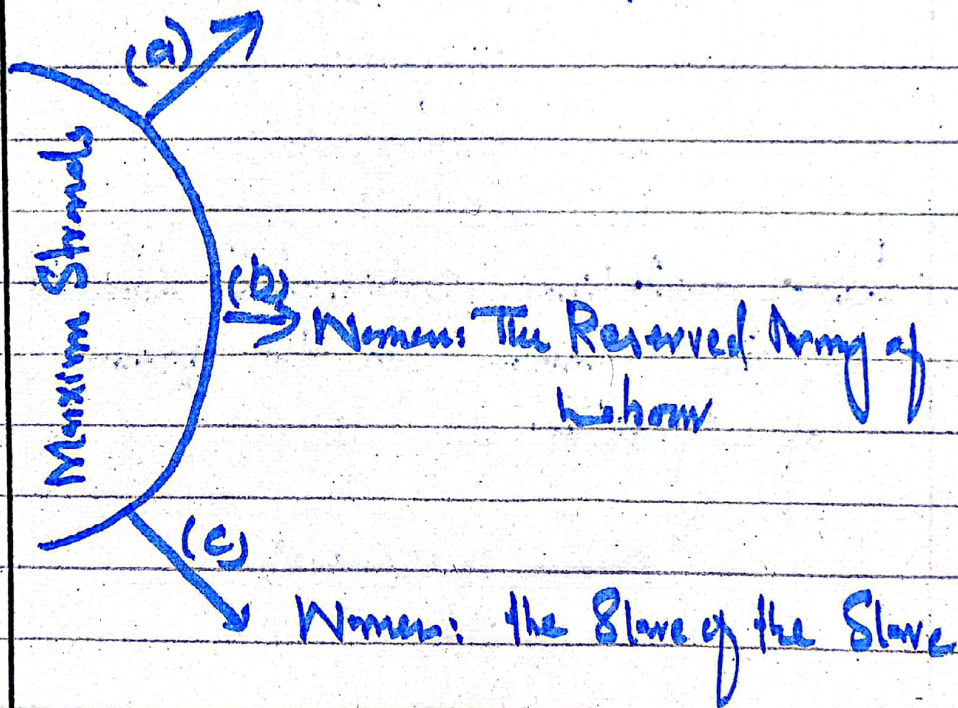 (a)
Marxim Strands
(b)
Women: The Reserved Army of
Labour
(c)
Women: the Slave of the Slave